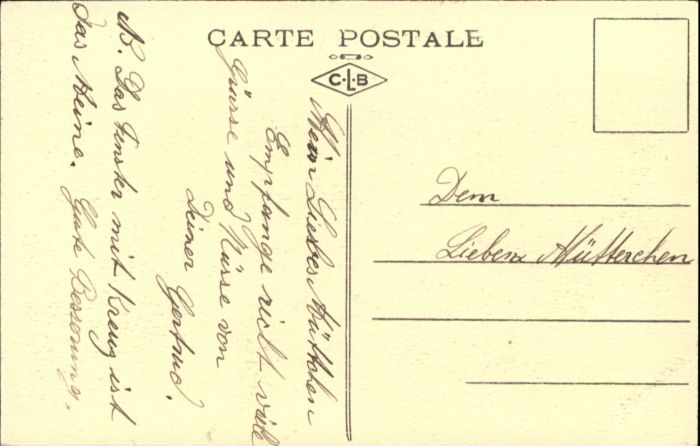 CARTE POSTALE
C.L.B
Mein Liebes Müttchen
Empfange recht viele
Grüsse und Küsse von
Deiner Gertrud.
NB. Das Fenster mit Kreuz ist
das Meine. Gute Besserung.
Dem
Lieben Mütterchen